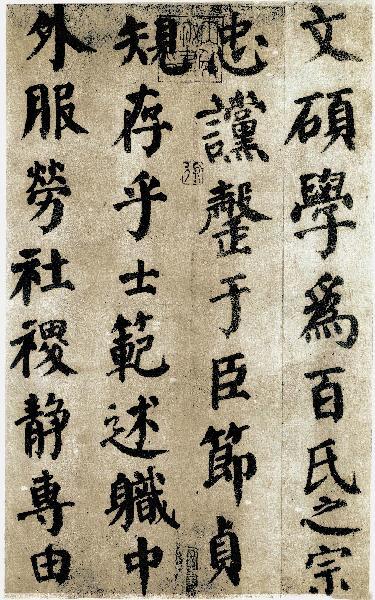 文碩學爲百氏之宗
忠讜罄于臣節貞
䂓存乎士範述軄中
外服勞社稷静專由